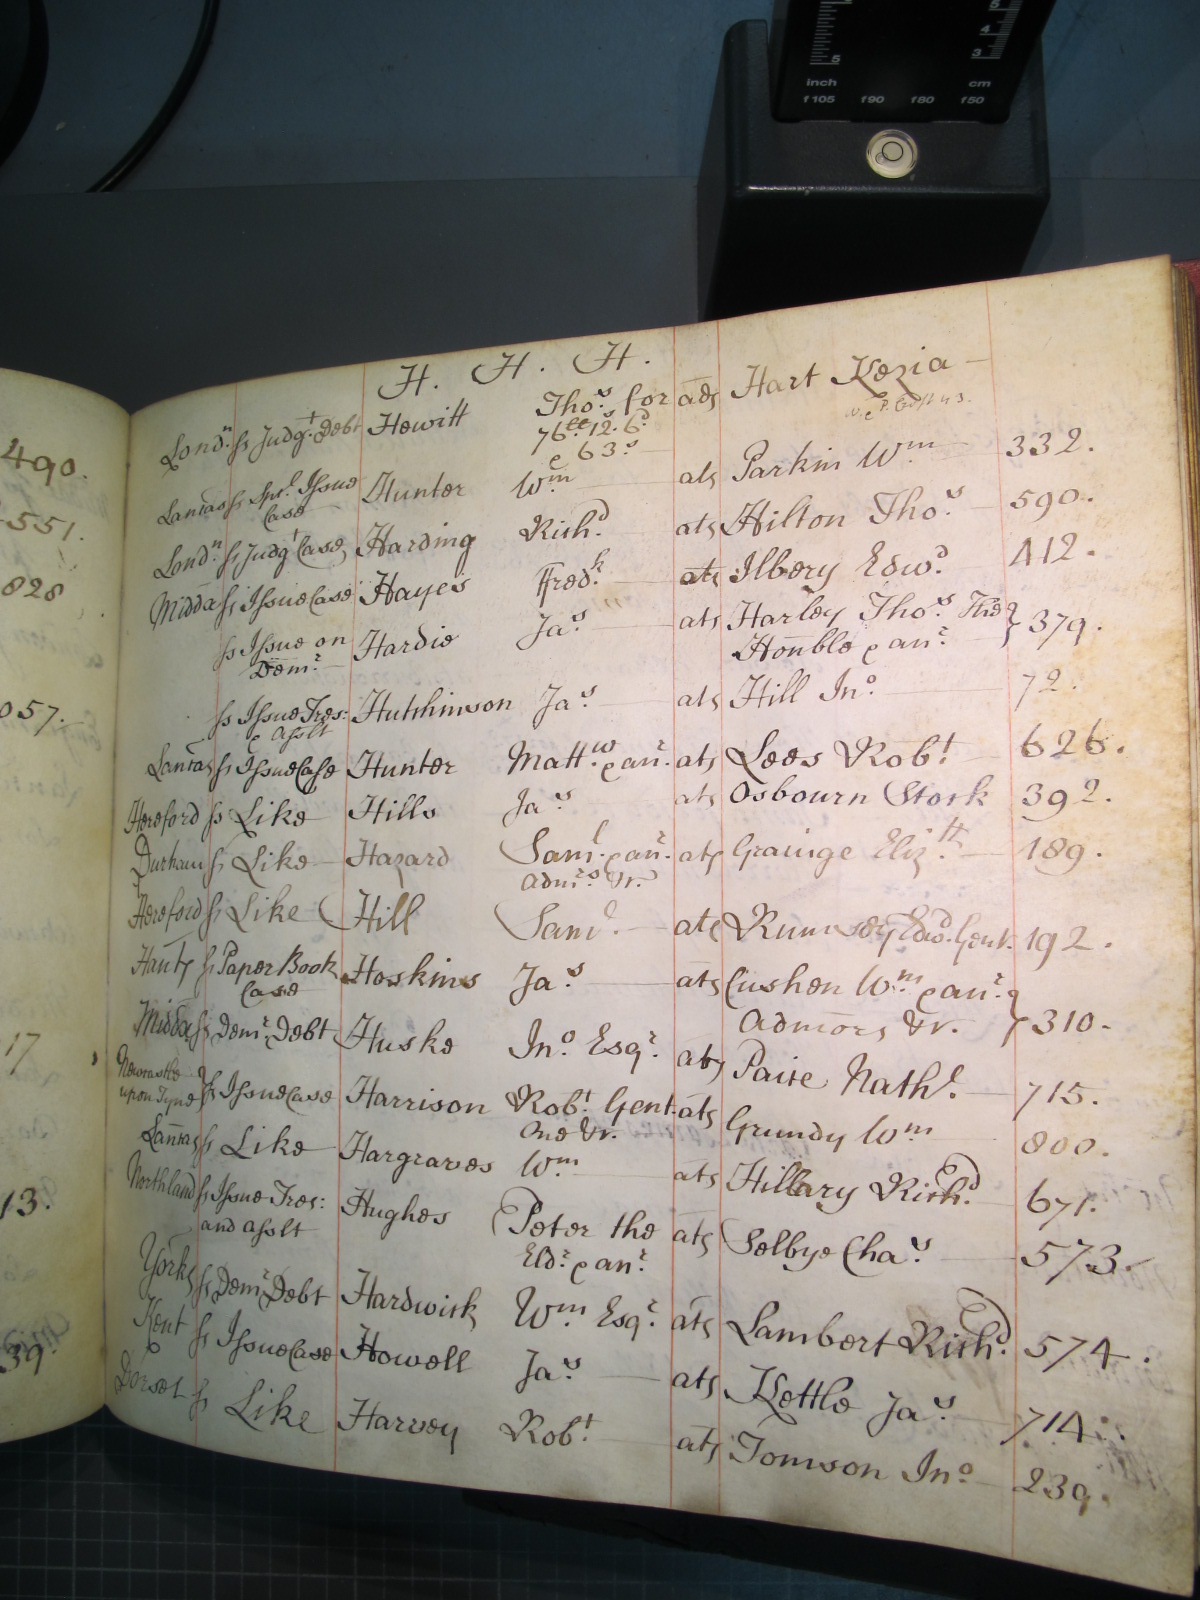 5
5
4
3
inch cm
f105 f90 f80 f50
490.
551.
828
057.
17
13.
39
H. H. H.
Lond.n ss Judg.t Debt Hewitt Tho.s for ads Hart Kezia
76ll.12s.6d
& 63s
Lancas ss Spec.l Issue Hunter Wm ats Parkin Wm 332.
Case
Lond.n ss Judg.t Case Harding Rich.d ats Hilton Tho.s 590.
Middx ss Issue Case Hayes Fred.k ats Ilbery Edw.d 412.
ss Issue on Hardie Ja.s ats Harley Tho.s The } 379.
Dem.r Honble & an.r
ss Issue Tres: Hutchinson Ja.s ats Hill Jn.o 72.
& Asslt
Lancas ss Issue Case Hunter Matt.w & an.r ats Lees Rob.t 626.
Hereford ss Like Hills Ja.s ats Osbourn Stork 392.
Durham ss Like Hazard Sam.l & an.r ats Grainge Eliz.th 189.
Adm.rs &c.
Hereford ss Like Hill Sam.l ats Rumsey Edw.d Gent. 192.
Hants ss Paper Book Hoskins Ja.s ats Cushen Wm & an.r } 310.
Case Admors &c.
Middx ss Dem.r Debt Huske Jn.o Esq.r ats Paice Nath.l 715.
Newcastle
upon Tyne } ss Issue Case Harrison Rob.t Gent. ats Grundy Wm 800.
One &c.
Lancas ss Like Hargraves Wm ats Hillary Rich.d 671.
Northland ss Issue Tres: Hughes Peter the ats Selbye Cha.s 573.
and Asslt Eld.r & an.r
Yorks ss Dem.r Debt Hardwick Wm Esq.r ats Lambert Rich.d 574.
Kent ss Issue Case Howell Ja.s ats Kettle Ja.s 714.
Dorset ss Like Harvey Rob.t ats Tomson Jn.o 239.